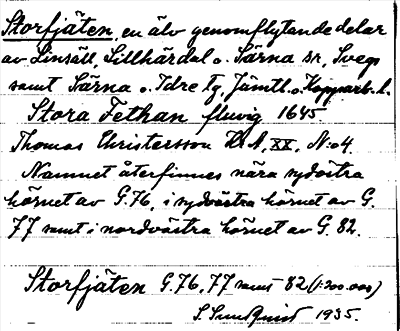 Storfjäten, en älv genomflytande delar
av Linsäll, Lillhärdal o. Särna sr, Svegs
samt Särna o. Idre tg, Jämtl. o. Kopparb. l.
Stora Fethan fluvig 1645
Thomas Christersson K. A. XX. N:o 4.
Namnet återfinnes nära sydöstra
hörnet av G. 76, i sydvästra hörnet av G.
77 samt i nordvästra hörnet av G. 82.
Storfjäten G. 76, 77 samt 82 (1:200.000)
S. Sundquist 1935.